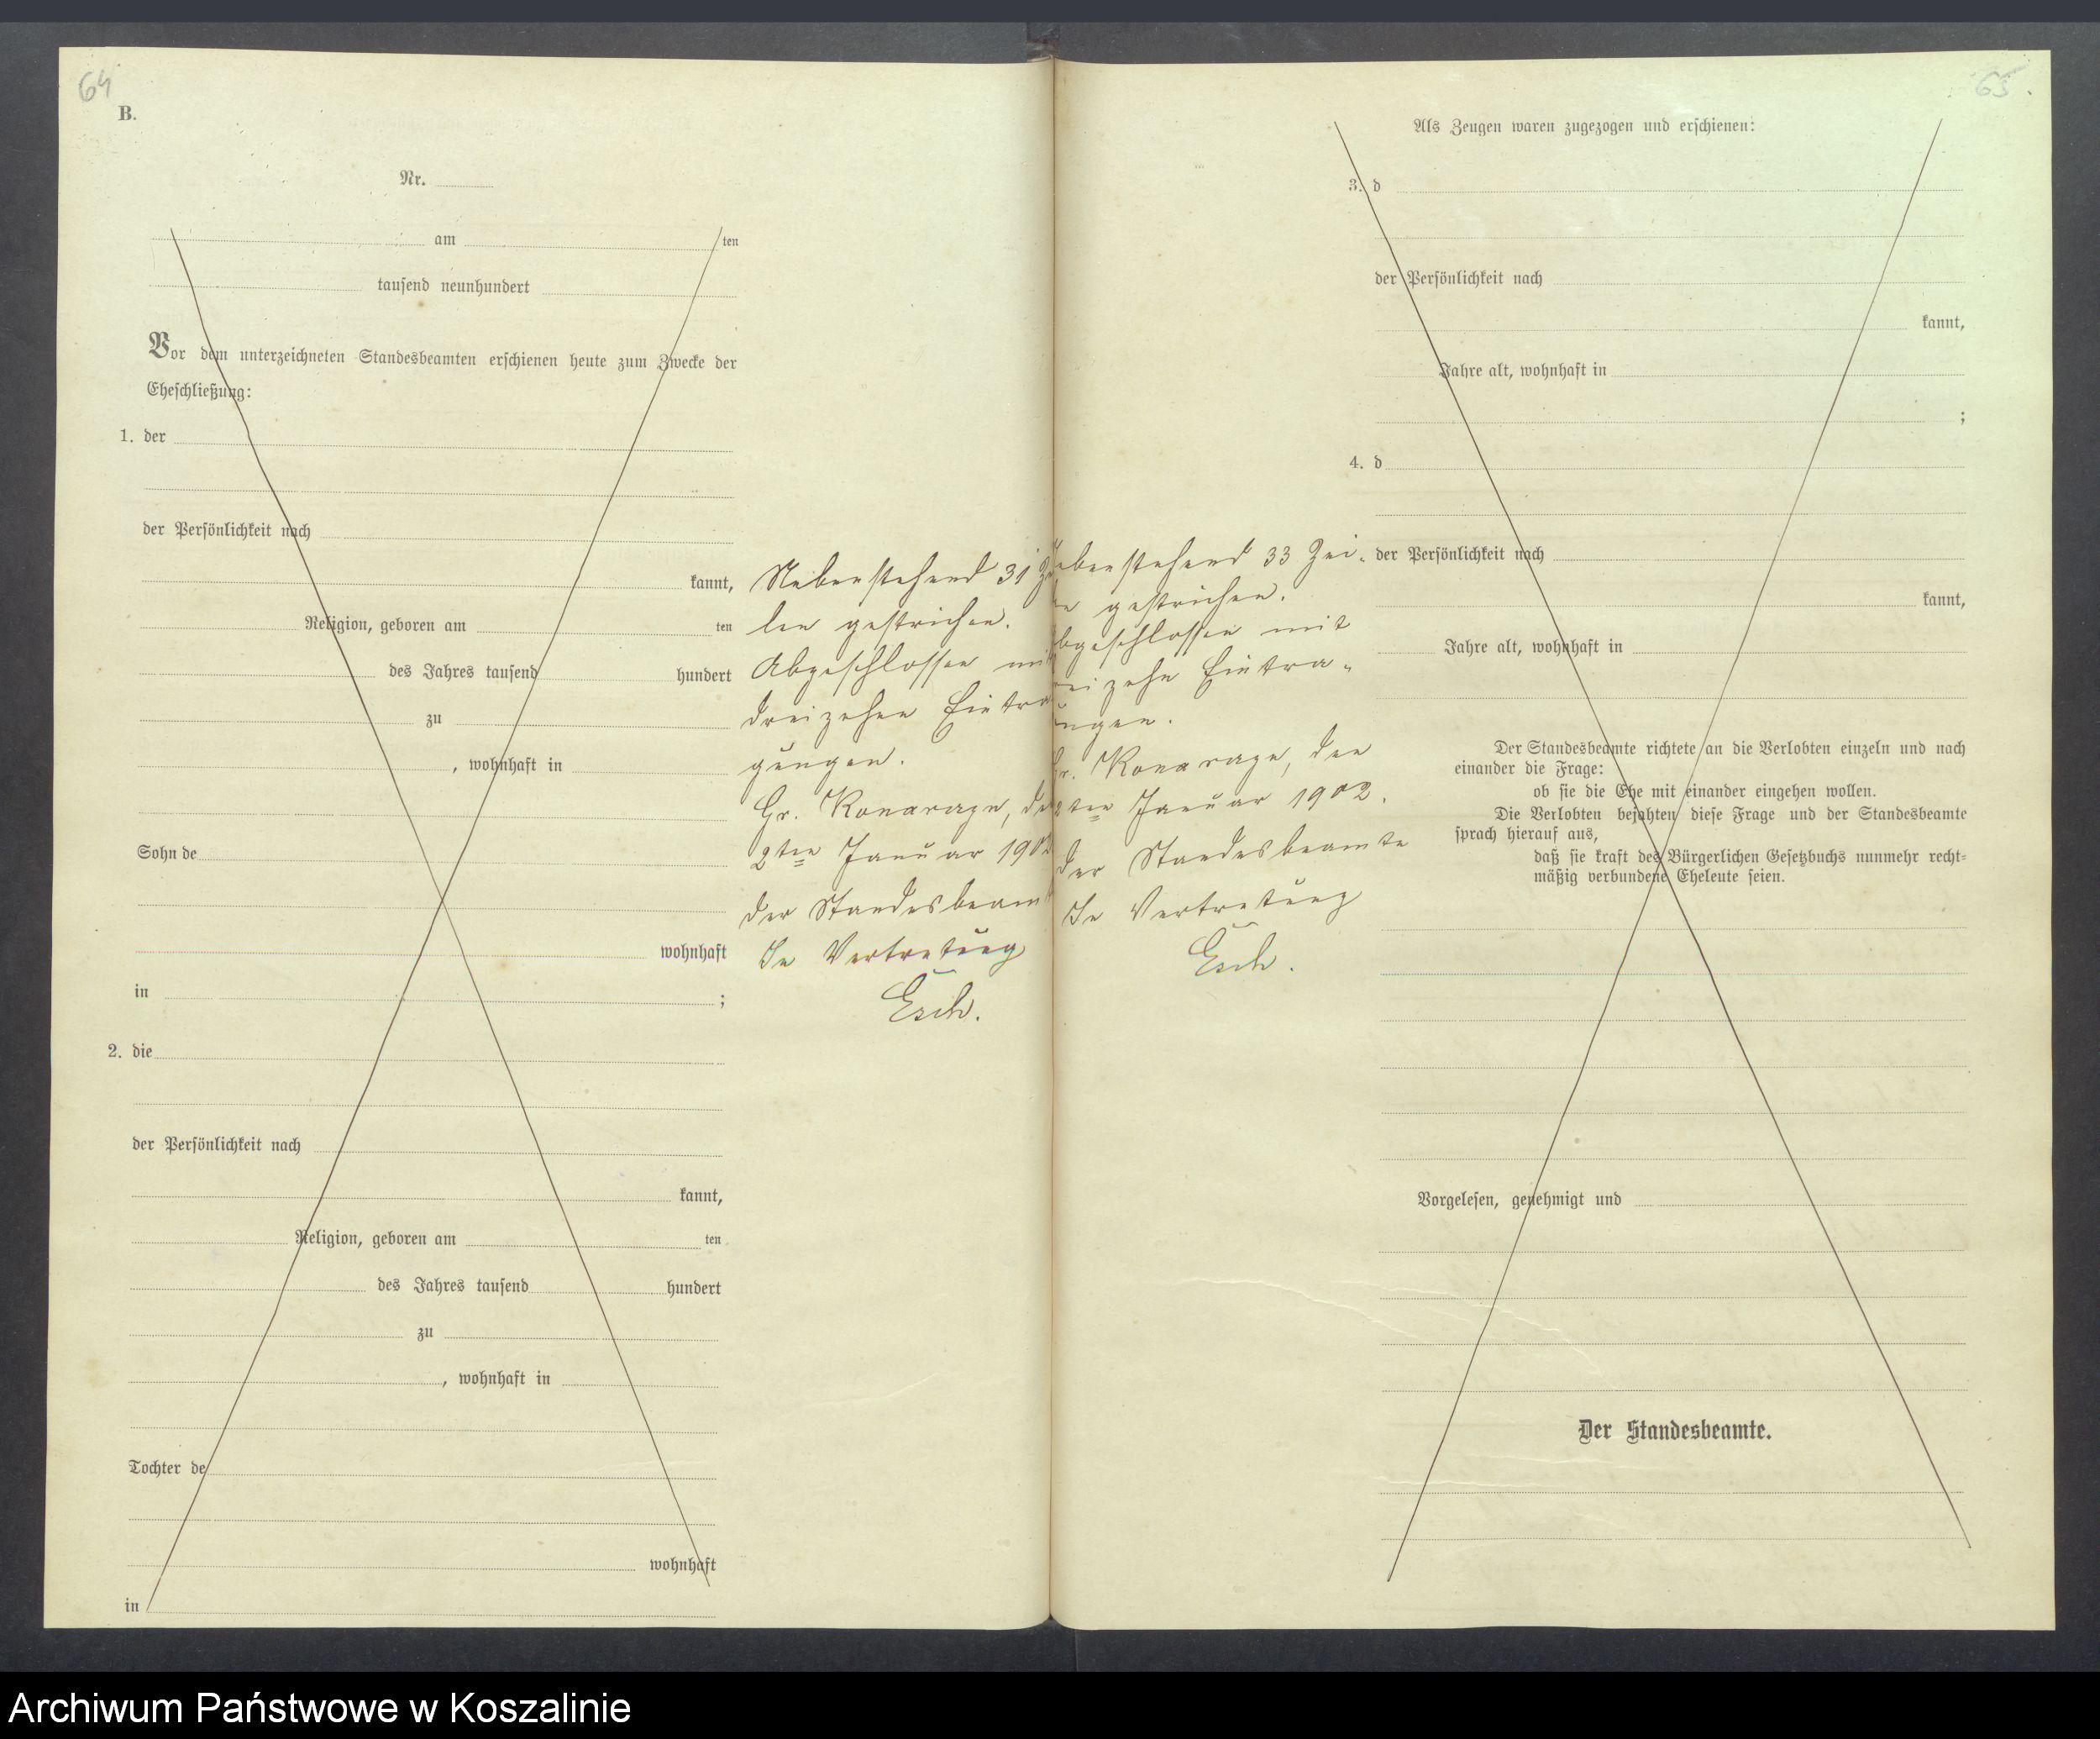 64
B.
Nr.
am ten
tausend neunhundert
Vor dem unterzeichneten Standesbeamten erschienen heute zum Zwecke der
Eheschließung:
1. der
der Persönlichkeit nach
kannt,
Religion, geboren am ten
des Jahres tausend hundert
zu
, wohnhaft in
Sohn de
wohnhaft
in ;
2. die
der Persönlichkeit nach
kannt,
Religion, geboren am ten
des Jahres tausend hundert
zu
, wohnhaft in
Tochter de
wohnhaft
in
Nebenstehend 31 Zei
len gestrichen.
Abgeschlossen mit
dreizehen Eintra
gungen.
Gr. Konarczyn, den
2ten Januar 1902
Der Standesbeamt
In Vertretung
Esch.
65.
Als Zeugen waren zugezogen und erschienen:
3. d
der Persönlichkeit nach
kannt,
Jahre alt, wohnhaft in
;
4. d
der Persönlichkeit nach
kannt,
Jahre alt, wohnhaft in
Der Standesbeamte richtete an die Verlobten einzeln und nach
einander die Frage:
ob sie die Ehe mit einander eingehen wollen.
Die Verlobten bejahten diese Frage und der Standesbeamte
sprach hierauf aus,
daß sie kraft des Bürgerlichen Gesetzbuchs nunmehr recht-
mäßig verbundene Eheleute seien.
Vorgelesen, genehmigt und
Der Standesbeamte.
ebenstehend 33 Zei-
en gestrichen.
bgeschlossen mit
reizehn Eintra-
ungen.
Gr. Konarczyn, den
2ten Januar 1902.
Der Standesbeamte
In Vertretung
Esch.
Archiwum Państwowe w Koszalinie